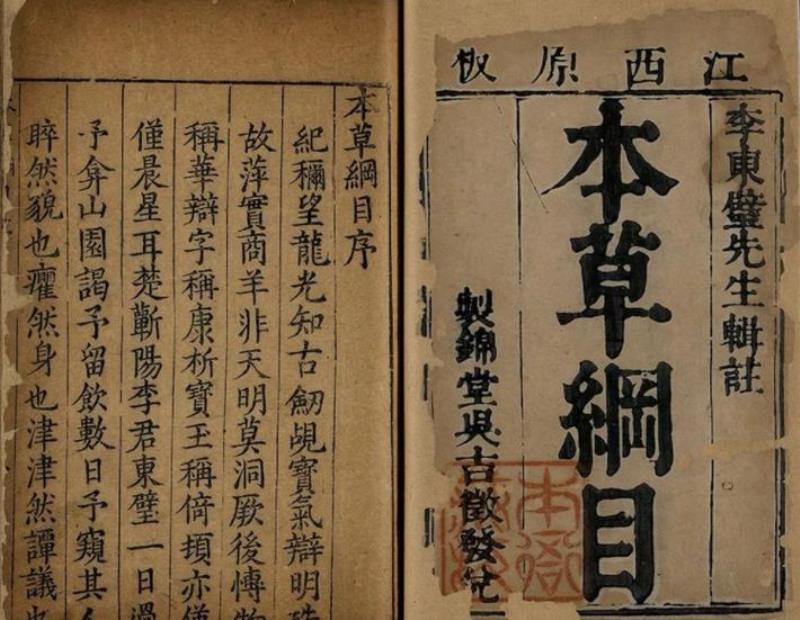 江西原板
李東璧先生輯註
本草綱目
製錦堂吳古徵發兌
本草綱目序
紀穪望龍光知古劒覘寶氣辯明珠
故萍實商羊非天明莫洞厥後博物
稱華辯字稱康析寶玉稱倚頓亦僅
僅晨星耳楚蘄陽李君東璧一日過
予弇山園謁予留飲數日予窺其
睟然貌也癯然身也津津然譚議也